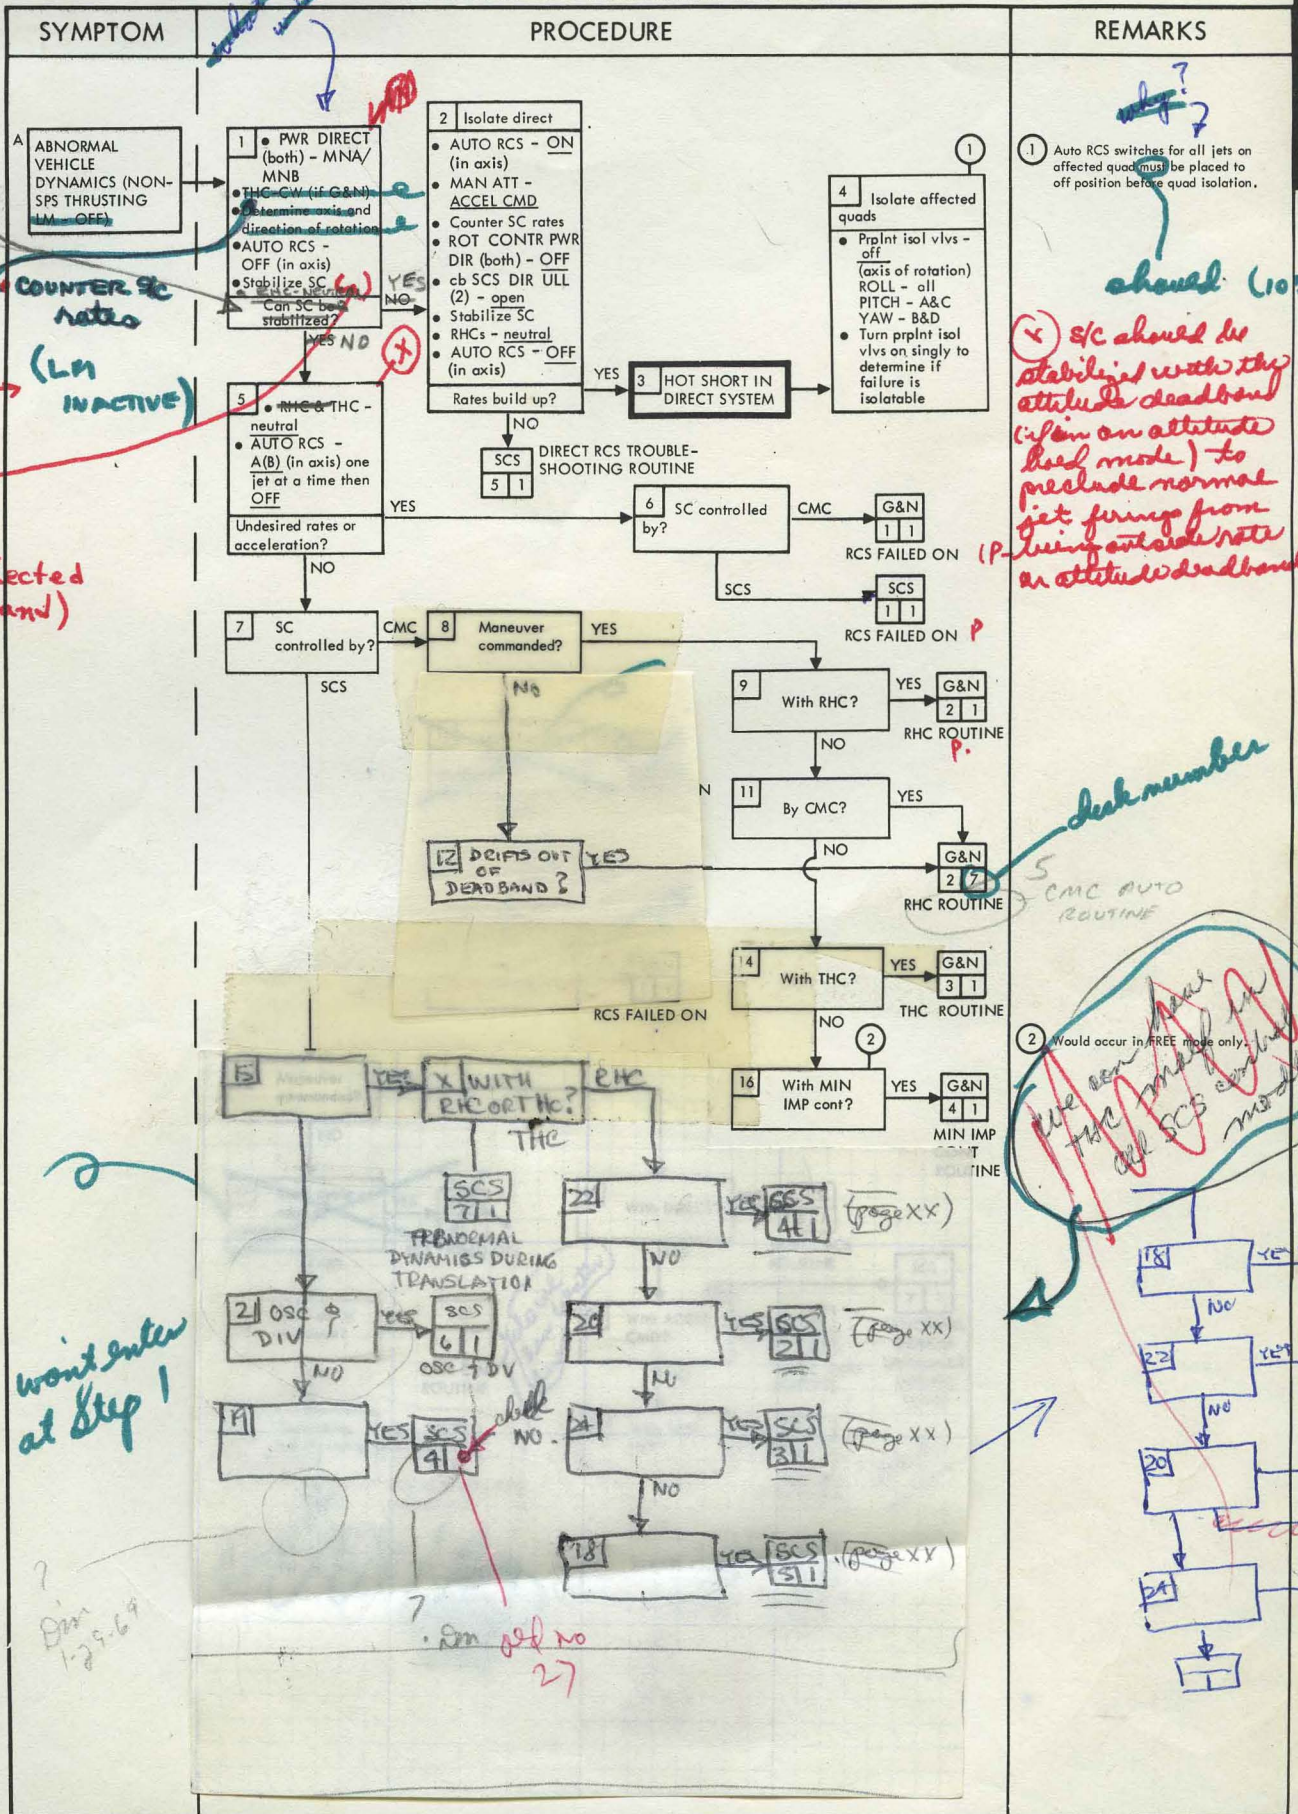 SYMPTOM
PROCEDURE
REMARKS
A
ABNORMAL
VEHICLE
DYNAMICS (NON-
SPS THRUSTING
LM - OFF)
COUNTER S/C
rates
(LM
INACTIVE)
1
• PWR DIRECT
(both) - MNA/
MNB
• THC-CW (if G&N)
• Determine axis and
direction of rotation
• AUTO RCS -
OFF (in axis)
• Stabilize SC
• RHC-NEUTRAL
Can SC be
stabilized?
YES
NO
YES NO
2 Isolate direct
• AUTO RCS - ON
(in axis)
• MAN ATT -
ACCEL CMD
• Counter SC rates
• ROT CONTR PWR
DIR (both) - OFF
• cb SCS DIR ULL
(2) - open
• Stabilize SC
• RHCs - neutral
• AUTO RCS - OFF
(in axis)
Rates build up?
YES
NO
3
HOT SHORT IN
DIRECT SYSTEM
1
4
Isolate affected
quads
• Prplnt isol vlvs -
off
(axis of rotation)
ROLL - all
PITCH - A&C
YAW - B&D
• Turn prplnt isol
vlvs on singly to
determine if
failure is
isolatable
SCS
5 1
DIRECT RCS TROUBLE-
SHOOTING ROUTINE
X
5
• RHC & THC -
neutral
• AUTO RCS -
A(B) (in axis) one
jet at a time then
OFF
Undesired rates or
acceleration?
YES
NO
6
SC controlled
by?
CMC
G&N
1 1
RCS FAILED ON
SCS
SCS
1 1
RCS FAILED ON P
ected
and)
7
SC
controlled by?
CMC
SCS
8
Maneuver
commanded?
YES
NO
9
With RHC?
YES
G&N
2 1
RHC ROUTINE
P.
NO
N
11
By CMC?
YES
NO
12 DRIFTS OUT
OF
DEADBAND?
YES
G&N
2 7
RHC ROUTINE
desk number
5
CMC AUTO
ROUTINE
14
With THC?
YES
G&N
3 1
THC ROUTINE
NO
RCS FAILED ON
2
16
With MIN
IMP cont?
YES
G&N
4 1
MIN IMP
15
Maneuver
commanded?
YES
X WITH
RHC OR THC?
RHC
THC
SCS
7 1
ABNORMAL
DYNAMICS DURING
TRANSLATION
21 OSC &
DIV ?
YES
SCS
6 1
OSC & DV
NO
19
YES
SCS
4
check
NO.
22
YES
SCS
4 1
(page XX)
NO
20
YES
SCS
2 1
(page XX)
NO
24
YES
SCS
3 1
(page XX)
NO
18
YES
SCS
5 1
(page XX)
?
old no
27
won't enter
at Step 1
?
1-29-69
why?
?
1 Auto RCS switches for all jets on
affected quad must be placed to
off position before quad isolation.
should
X S/C should be
stabilized with the
attitude deadband
(if in an attitude
hold mode) to
preclude normal
jet firings from
being outside rate
or attitude deadband
2 Would occur in FREE mode only.
we can have
THC malf in
all SCS control
modes
18
YES
NO
22
YES
NO
20
24
1